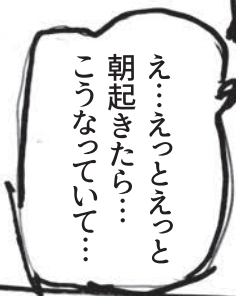 え…えっとえっと
朝起きたら…
こうなっていて…